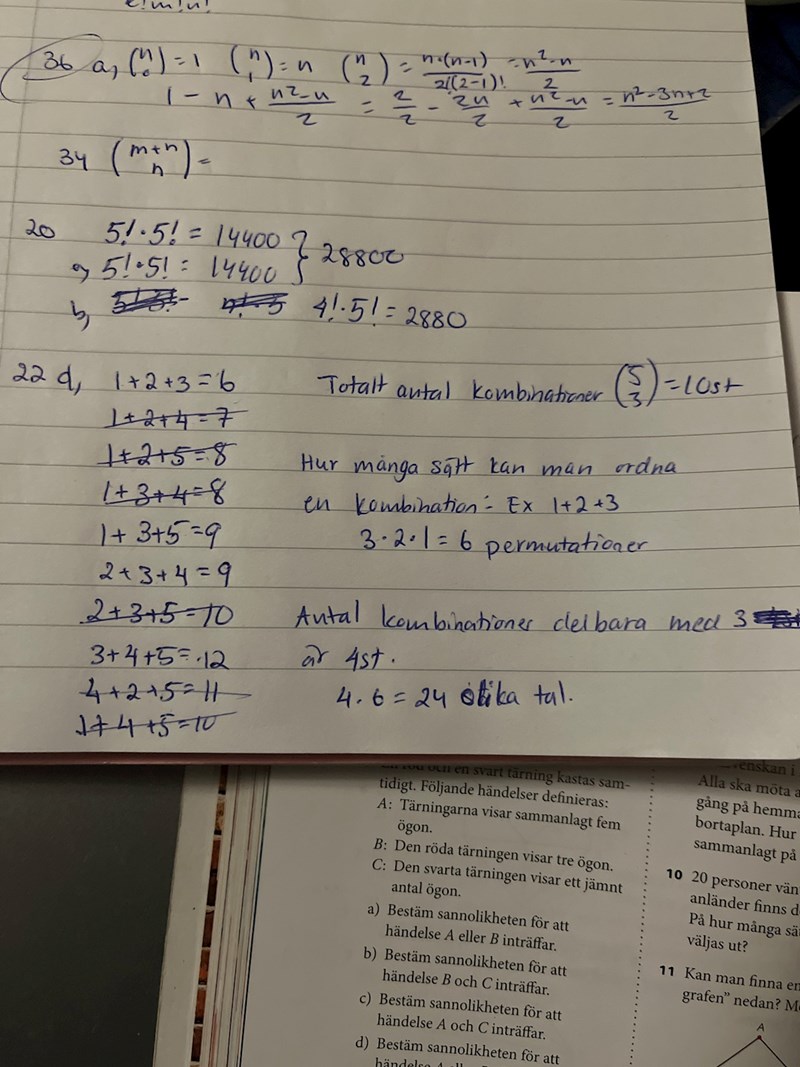 36 a, (n 0) = 1 (n 1) = n (n 2) = n·(n-1) / 2!(2-1)! = n²-n / 2
1 - n + n²-n / 2 = 2/2 - 2n/2 + n²-n / 2 = n²-3n+2 / 2
34 (m+n n) =
20 5!·5! = 14400 } 28800
a, 5!·5! = 14400
b, 4!·5! = 2880
22 d, 1+2+3=6 Totalt antal kombinationer (5 3) = 10st
1+2+4=7
1+2+5=8 Hur många sätt kan man ordna
1+3+4=8 en kombination: Ex 1+2+3
1+3+5=9 3·2·1=6 permutationer
2+3+4=9
2+3+5=10 Antal kombinationer delbara med 3
3+4+5=12 är 4st.
4+2+5=11 4·6=24 olika tal.
1+4+5=10
en svart tärning kastas sam-
tidigt. Följande händelser definieras:
A: Tärningarna visar sammanlagt fem
ögon.
B: Den röda tärningen visar tre ögon.
C: Den svarta tärningen visar ett jämnt
antal ögon.
a) Bestäm sannolikheten för att
händelse A eller B inträffar.
b) Bestäm sannolikheten för att
händelse B och C inträffar.
c) Bestäm sannolikheten för att
händelse A och C inträffar.
d) Bestäm sannolikheten för att
Alla ska möta a
gång på hemma
bortaplan. Hur
sammanlagt på
10 20 personer vän
anländer finns d
På hur många sä
väljas ut?
11 Kan man finna en
grafen" nedan? M
A